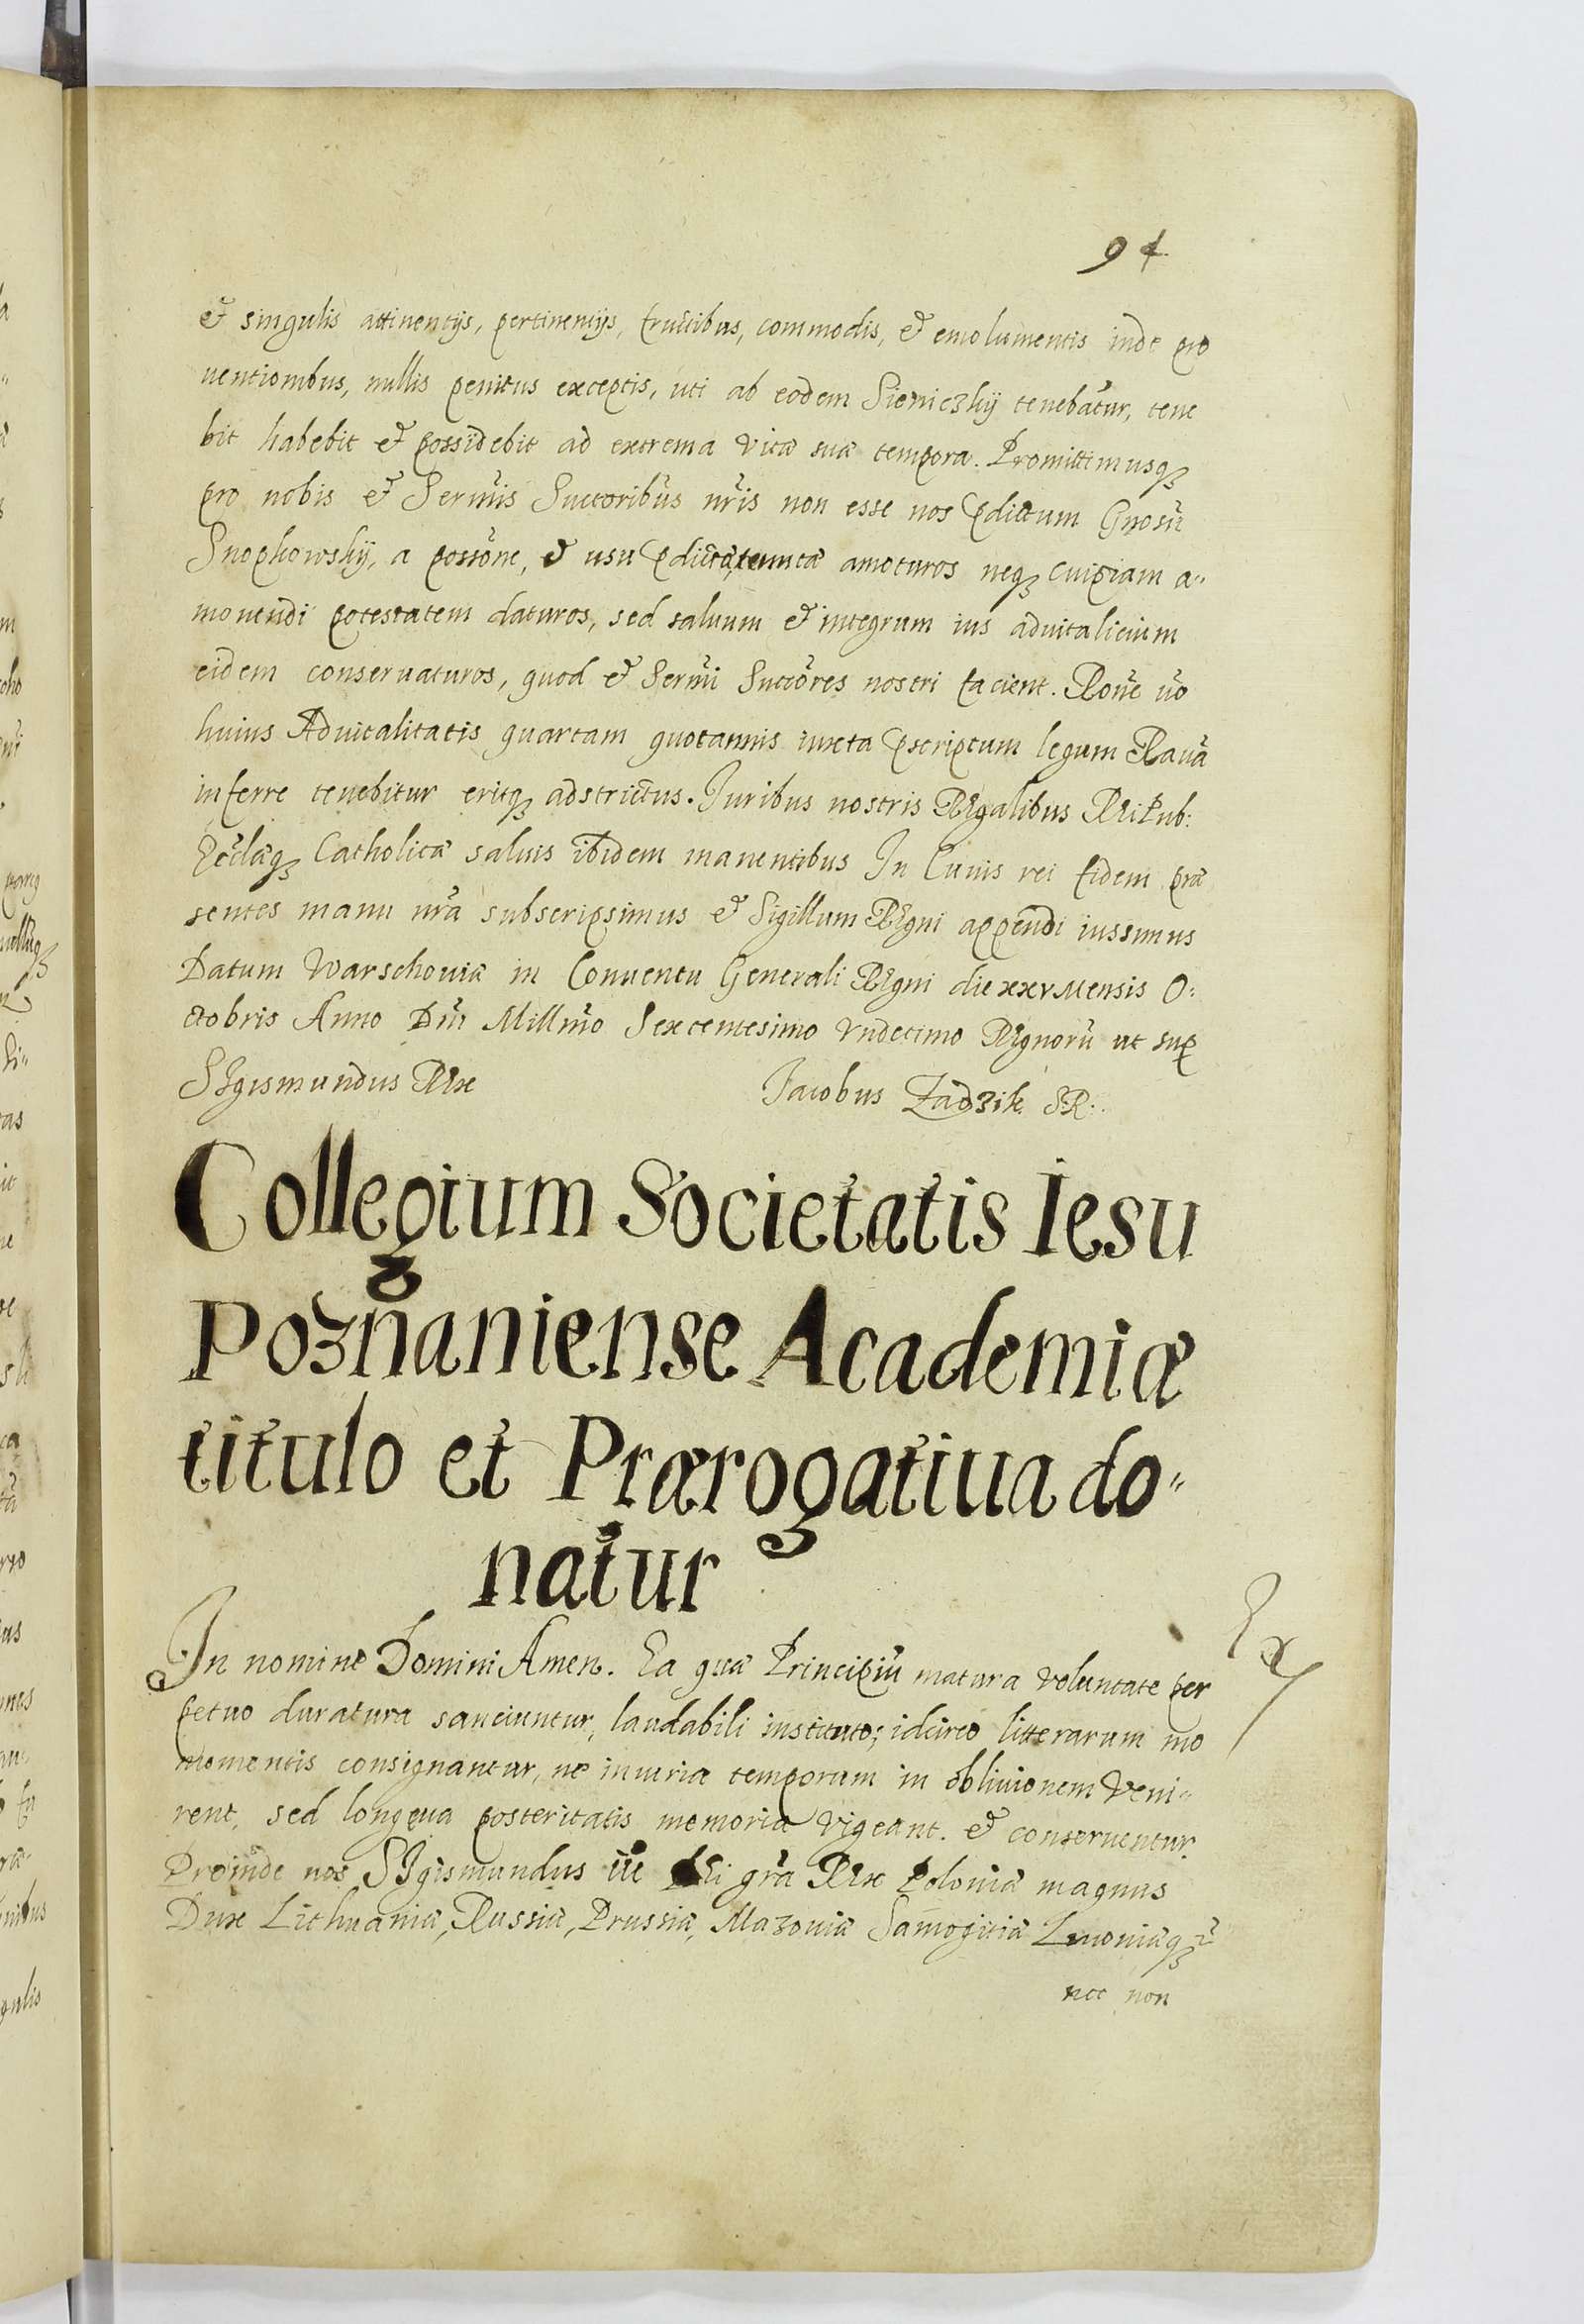 94
et singulis attinentijs, pertinentijs, fructibus, commodis, et emolumentis inde pro
uentionibus, nullis penitus exceptis, uti ab eodem Sieniczkij tenebatur, tene
bit habebit et possidebit ad extrema vitæ suæ tempora. Promittimusqꝫ
pro nobis et Sermis Suctoribus nris non esse nos pdictum Gnosũ
Snopkowskij, a possõne, et usu pdictæ amoturos neqꝫ cuipiam a„
mouendi potestatem daturos, sed saluum et integrum ius aduitalicium
eidem conseruaturos, quod et Sermi Suctores nostri facient. Rone uo
huius Aduitalitatis quartam quotannis iuxta pscriptum legum Rauã
inferre tenebitur eritqꝫ adstrictus. Juribus nostris Regalibus Rei Pub:
Ecclæqꝫ Catholicæ saluis ibidem manentibus In Cuius rei fidem præ
sentes manu nra subscripsimus et Sigillum Regni appendi iussimus
Datum Warschouiæ in Conuentu Generali Regni die xxv Mensis O:
ctobris Anno Dni Millmo Sexcentesimo Vndecimo Regnorũ ut sup
SIgismundus Rex Jacobus Zadzik SR:
Collegium Societatis Iesu
Poznaniense Academiæ
titulo et Prærogatiua do„
natur
In nomine Domini Amen. Ea quæ Principiũ matura voluntate per
petuo duratura sanciuntur, laudabili instituto; idcirco litterarum mo
momentis consignantur, ne iniuria temporum in obliuionem Veni„
rent, sed longæua posteritatis memoria vigeant. et conseruentur.
Proinde nos SIgismundus iii Dei gra Rex Poloniæ magnus
Dux Lithuaniæ, Russiæ, Prussiæ, Mazouiæ Samogitiæ Liuoniæqꝫ
nec non